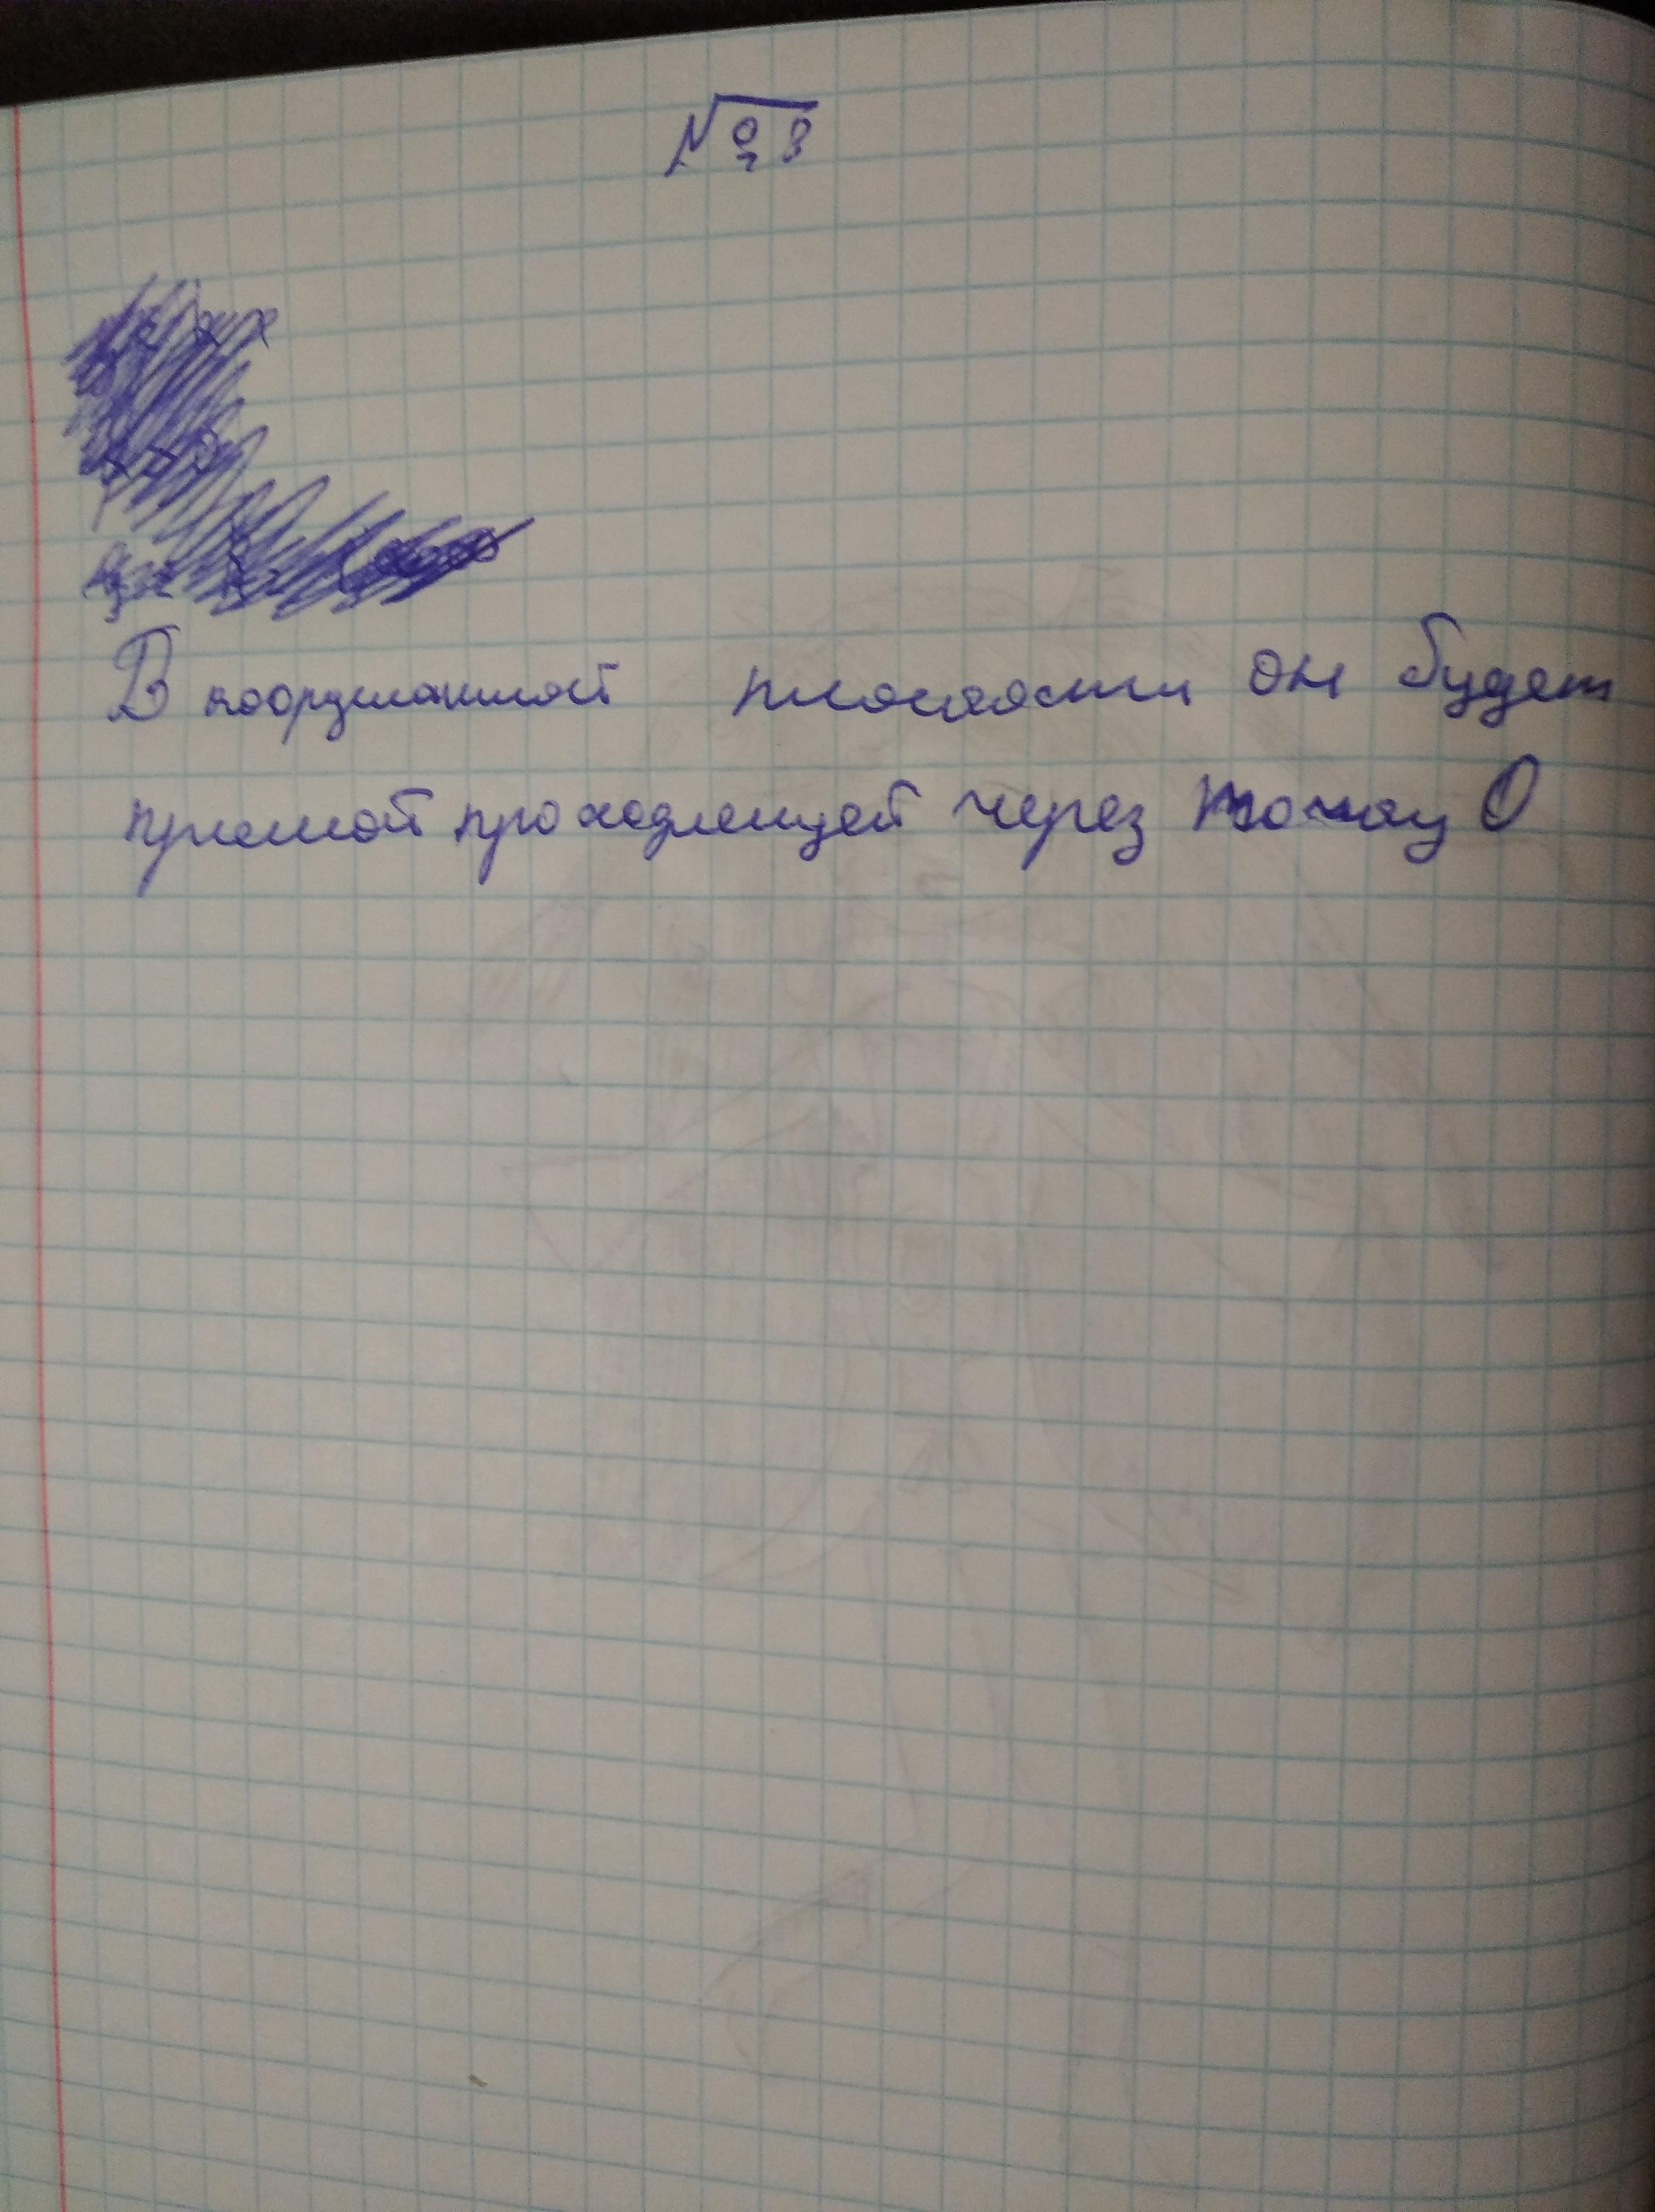 № 98
В координатной плоскости он будет
прямой проходящей через точку О